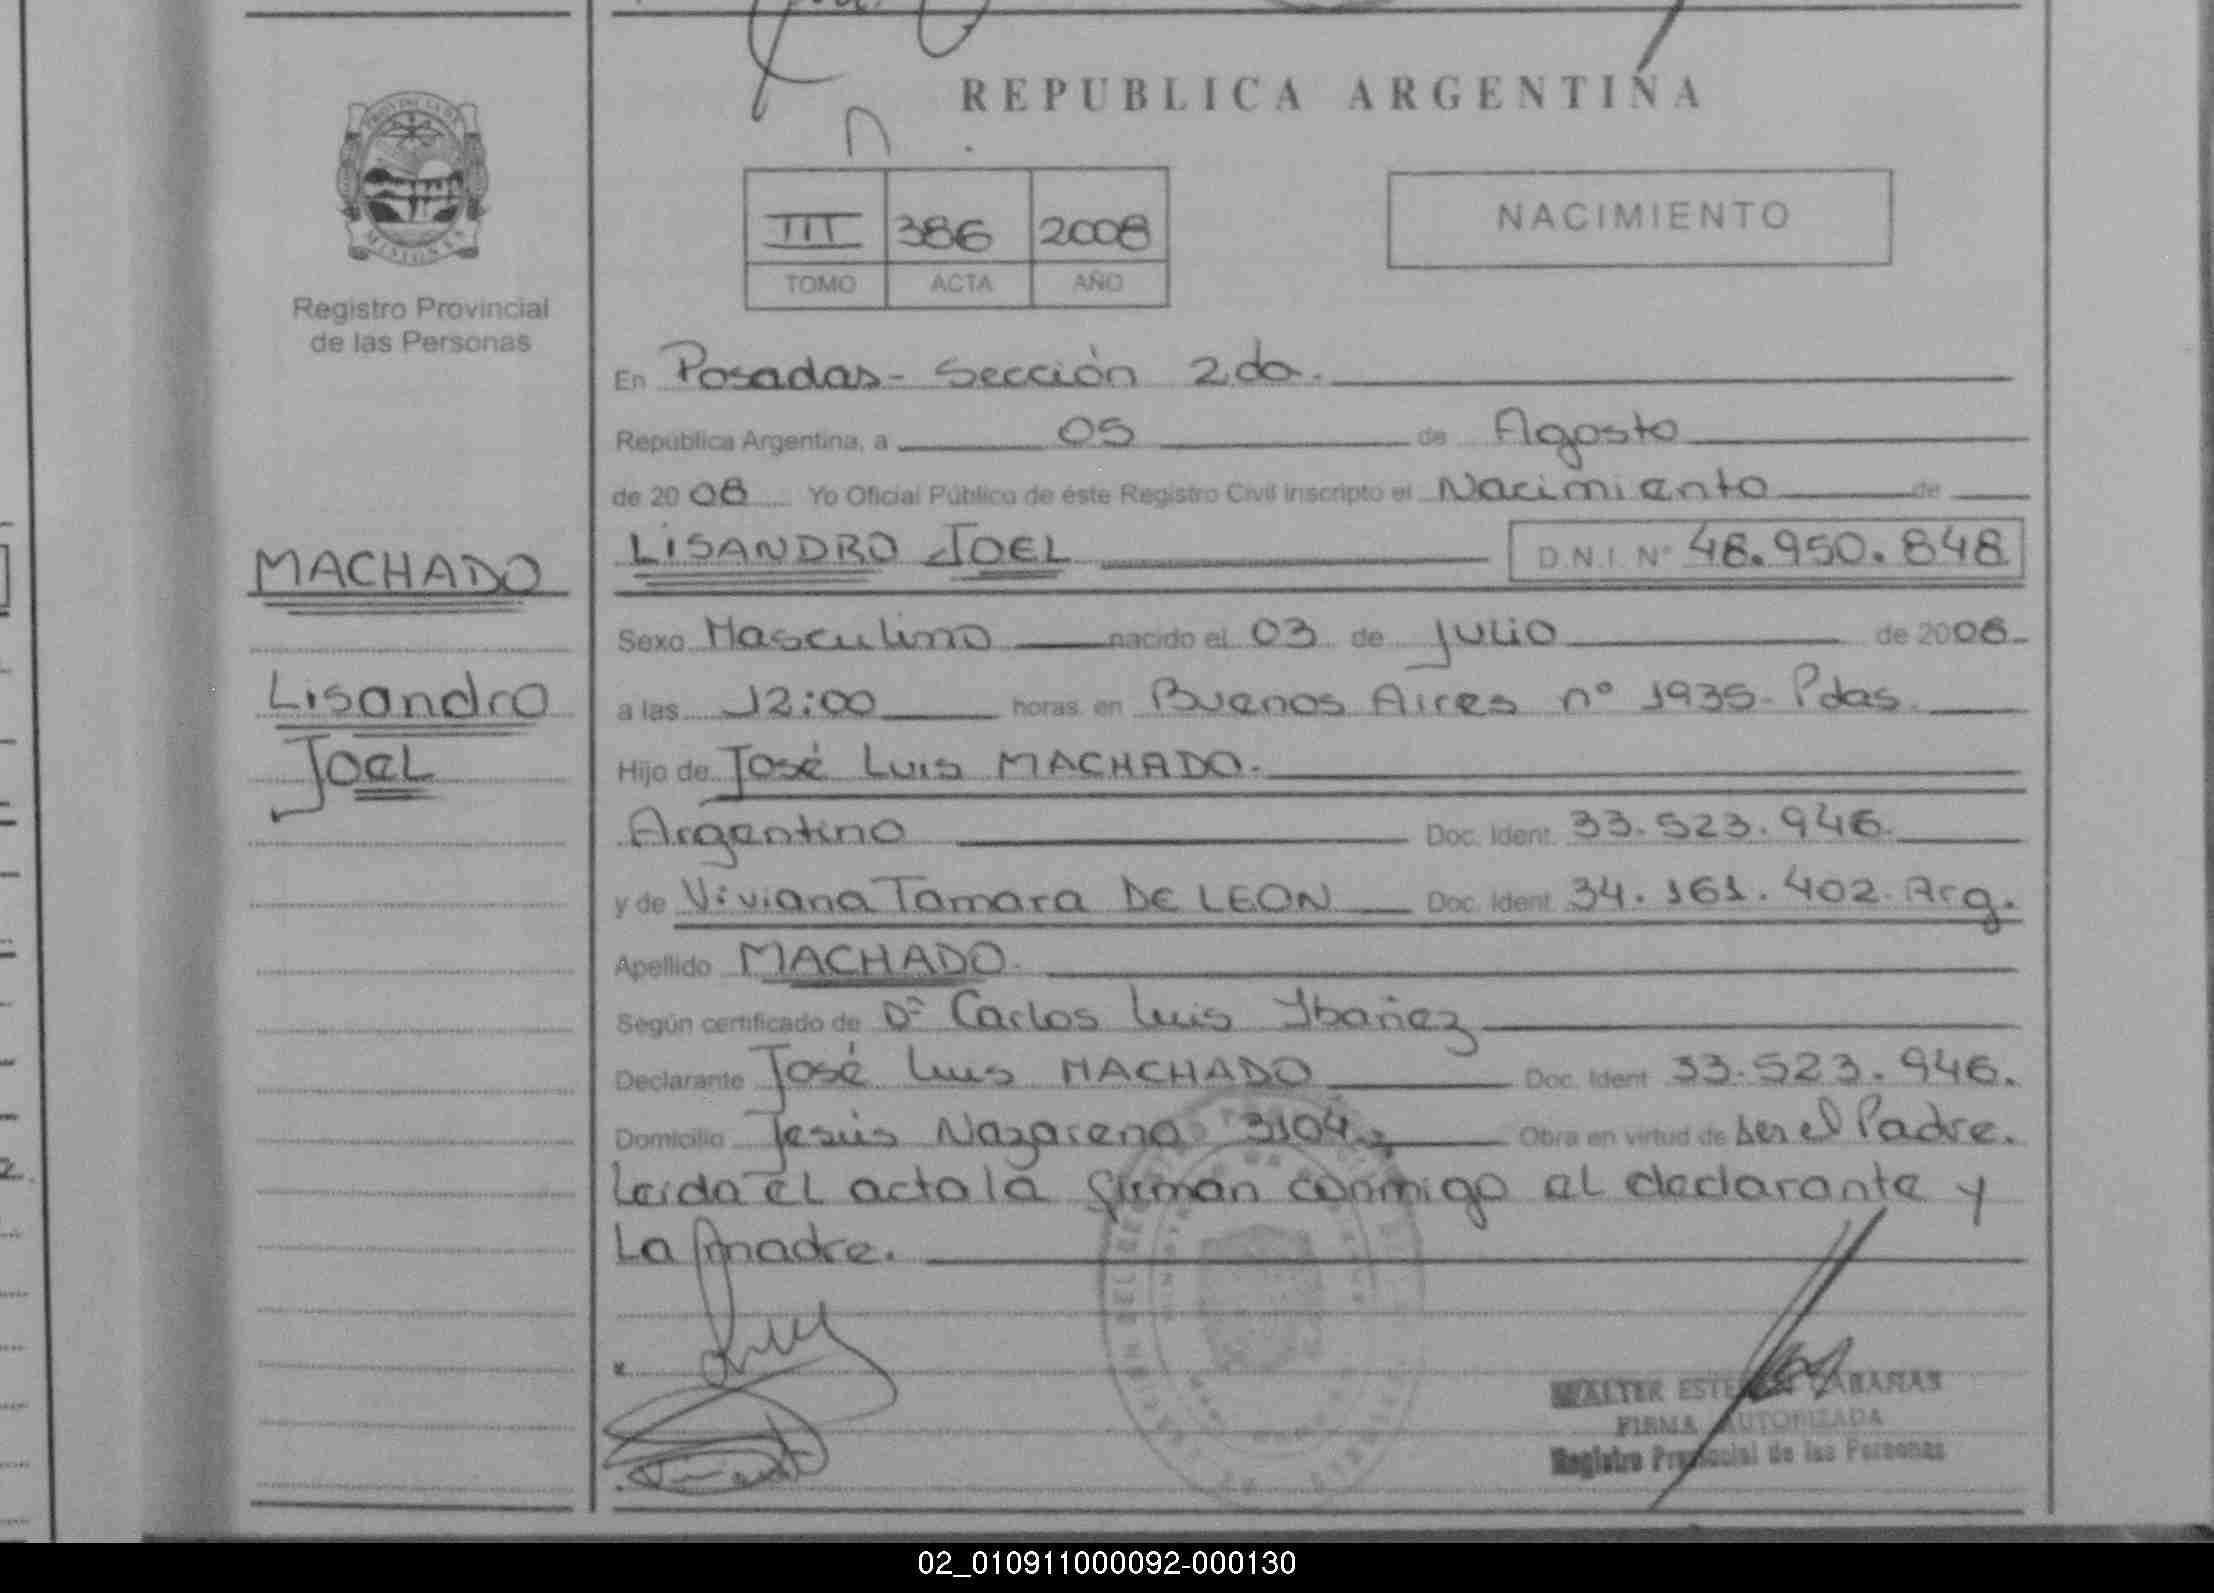 REPUBLICA ARGENTINA
PROVINCIA DE
MISIONES
Registro Provincial
de las Personas
III 386 2008
TOMO ACTA AÑO
NACIMIENTO
En Posadas - Sección 2da.
República Argentina, a 05 de Agosto
de 2008 Yo Oficial Público de éste Registro Civil inscripto el Nacimiento de
MACHADO
Lisandro
Joel
LISANDRO JOEL D.N.I. Nº 48.950.848
Sexo Masculino nacido el 03 de julio de 2008
a las 12:00 horas en Buenos Aires nº 1935- Pdas.
Hijo de José Luis MACHADO.
Argentino Doc. Ident. 33.523.946.
y de Viviana Tamara DE LEON Doc. Ident. 34.161.402. Arg.
Apellido MACHADO.
Según certificado de Dr Carlos Luis Ibañez
Declarante José Luis MACHADO Doc. Ident 33.523.946.
Domicilio Jesús Nazareno 3104. Obra en virtud de ser el Padre.
Leída el acta la firman conmigo el declarante y
La madre.
WALTER
FIRMA AUTORIZADA
Registro Provincial de las Personas
02_010911000092-000130